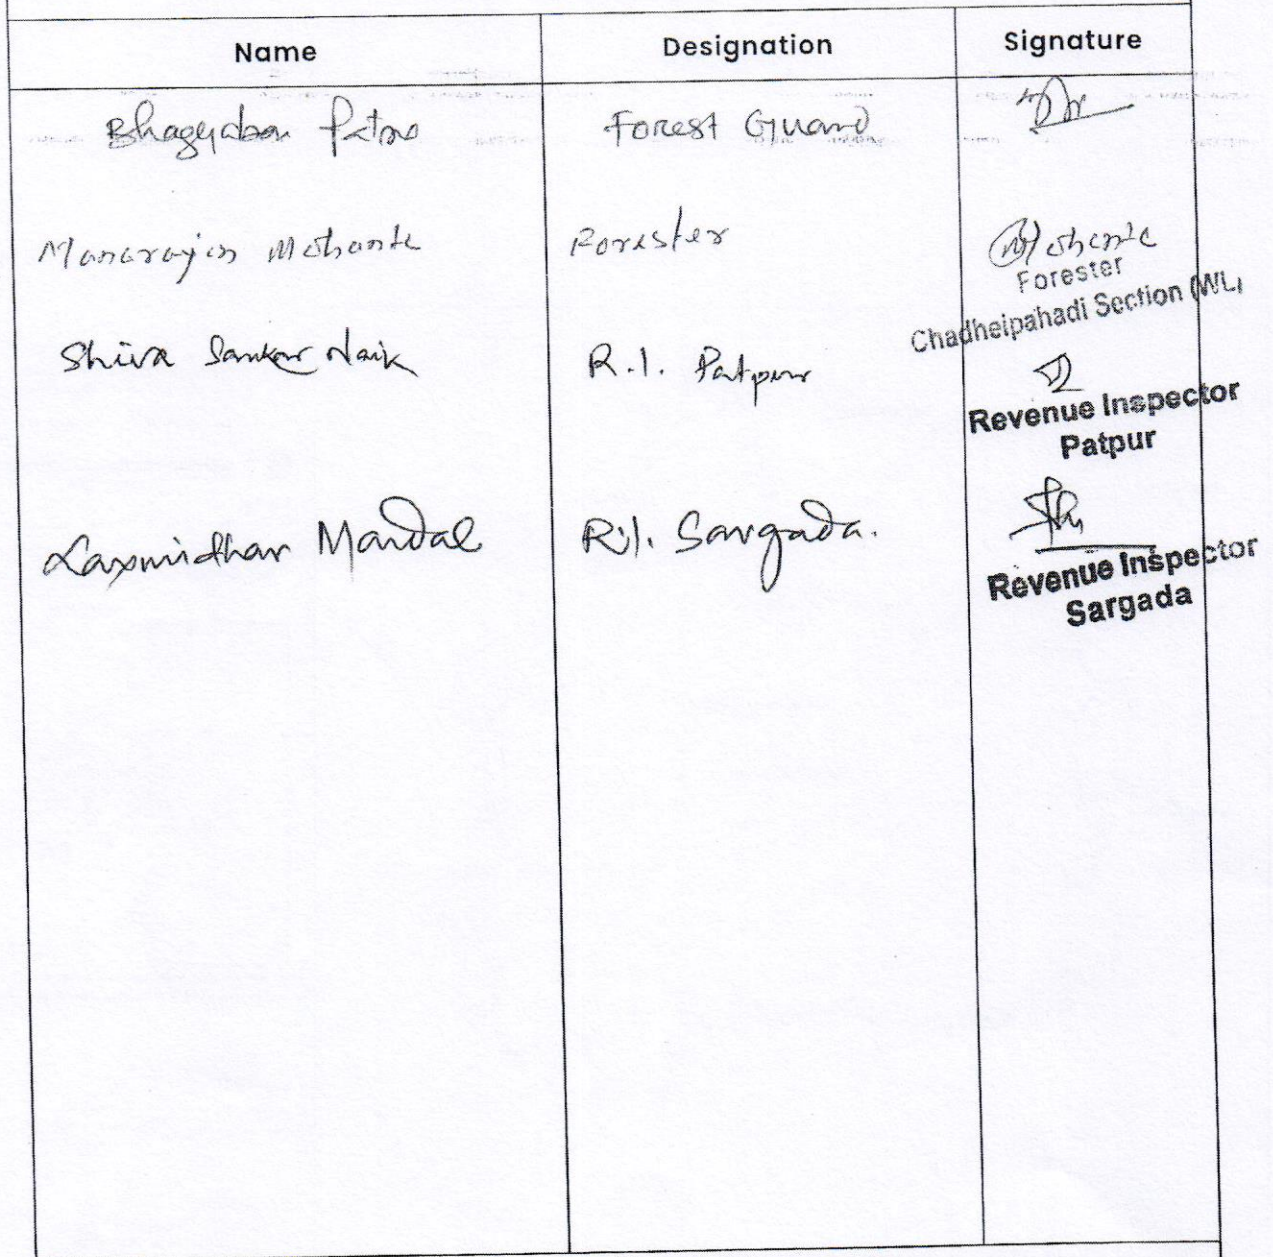 Name Designation Signature
Bhagyaban Patra Forest Guard
Manaranjan Mohanta Forester Mohanta
Forester
Chadheipahadi Section (WL)
Shiva Sankar Naik R.I. Patpur
Revenue Inspector
Patpur
Laxmidhar Mandal R.I. Sargada.
Revenue Inspector
Sargada